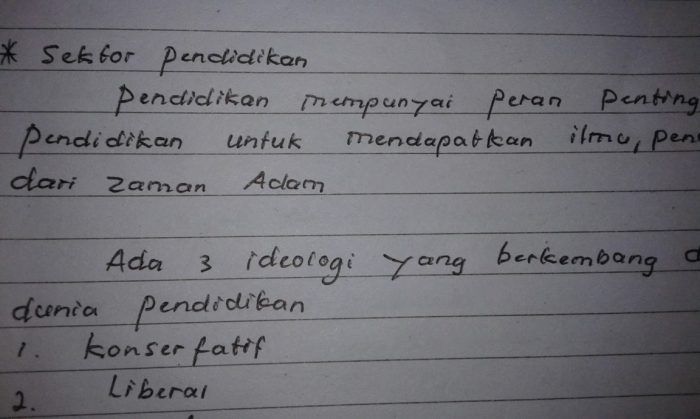 * Sektor pendidikan
pendidikan mempunyai peran penting
pendidikan untuk mendapatkan ilmu,
dari zaman Adam
Ada 3 ideologi yang berkembang
dunia pendidikan
1. konserfatif
2. Liberal